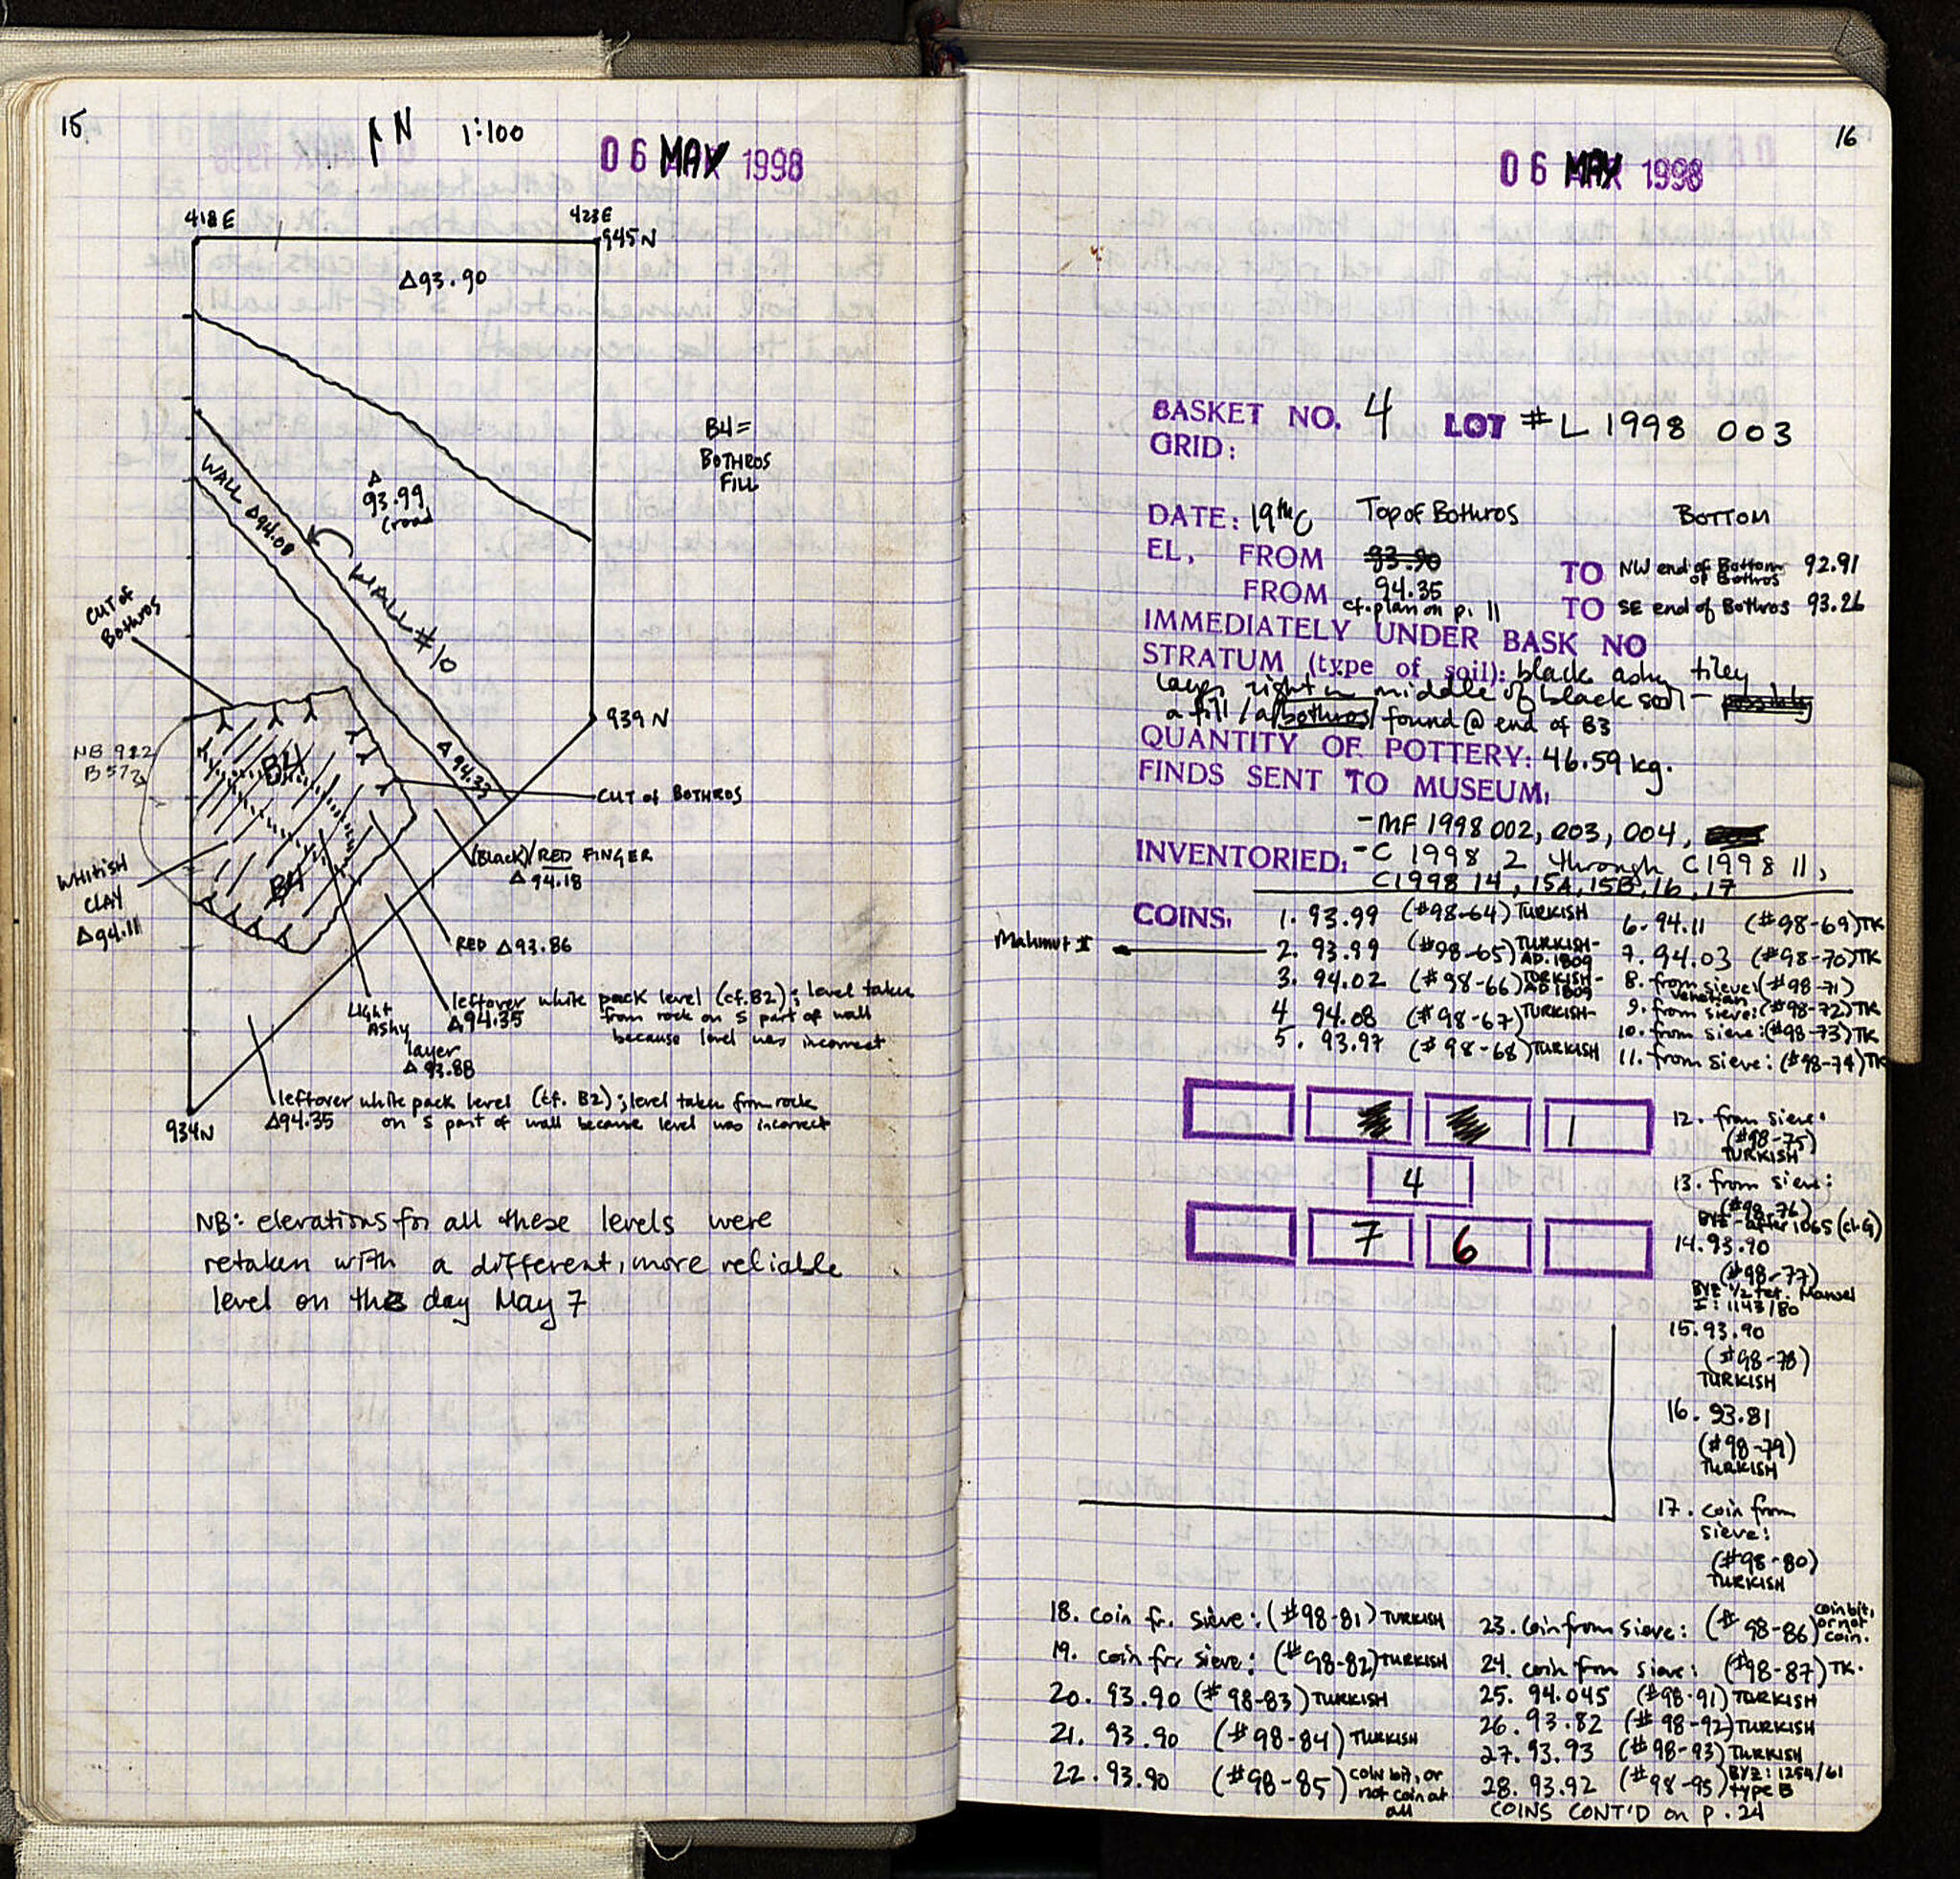 15
N 1:100
06 MAY 1998
418E
423E
945N
Δ93.90
B4=
BOTHROS
FILL
WALL Δ94.08
Δ
93.99
(road
WALL #10
CUT of
Bothros
939 N
NB 922
B 572
B4
Δ 94.33
CUT of BOTHROS
B4
(BLACK)/RED FINGER
Δ 94.18
WHITISH
CLAY
Δ94.11
RED Δ93.86
LIGHT
ASHY
layer
Δ 93.88
leftover white pack level (cf. B2); level taken
Δ94.35 from rock on S part of wall
because level was incorrect
leftover white pack level (cf. B2); level taken from rock
Δ94.35 on S part of wall because level was incorrect
934N
NB: elevations for all these levels were
retaken with a different, more reliable
level on the day May 7
16
06 MAY 1998
BASKET NO. 4 LOT #L 1998 003
GRID:
DATE: 19th C Top of Bothros BOTTOM
EL, FROM 93.90 TO NW end of Bottom of Bothros 92.91
FROM 94.35 TO SE end of Bothros 93.26
cf. plan on p. 11
IMMEDIATELY UNDER BASK NO
STRATUM (type of soil): black ashy tiley
layer right in middle of black soil - possibly
a fill / a/bothros/ found @ end of B3
QUANTITY OF POTTERY: 46.59 kg.
FINDS SENT TO MUSEUM,
- MF 1998 002, 003, 004,
INVENTORIED, - C 1998 2 through C 1998 11,
C 1998 14, 15A, 15B, 16, 17
COINS,
Mahmut II
1. 93.99 (#98-64) TURKISH
2. 93.99 (#98-65) TURKISH- AD. 1809
3. 94.02 (#98-66) TURKISH- AD 1809
4 94.08 (#98-67) TURKISH-
5. 93.97 (#98-68) TURKISH
6. 94.11 (#98-69) TK
7. 94.03 (#98-70) TK
8. from sieve: (#98-71) Venetian
9. from sieve: (#98-72) TK
10. from sieve: (#98-73) TK
11. from sieve: (#98-74) TK
1
4
7 6
12. from sieve:
(#98-75)
TURKISH
13. from sieve:
(#98-76)
BYZ - after 1065 (cl. G)
14. 93.90
(#98-77)
BYZ 1/2 tet. Manuel
I: 1143/80
15. 93.90
(#98-78)
TURKISH
16. 93.81
(#98-79)
TURKISH
17. coin from
sieve:
(#98-80)
TURKISH
18. coin fr. sieve: (#98-81) TURKISH
19. coin frr sieve: (#98-82) TURKISH
20. 93.90 (#98-83) TURKISH
21. 93.90 (#98-84) TURKISH
22. 93.90 (#98-85) coin bit, or
not coin at
all
23. Coin from sieve: (#98-86) coin bit,
or not
coin.
24. coin from sieve: (#98-87) TK.
25. 94.045 (#98-91) TURKISH
26. 93.82 (#98-92) TURKISH
27. 93.93 (#98-93) TURKISH
28. 93.92 (#98-95) BYZ: 1254/61
type B
COINS CONT'D on p. 24